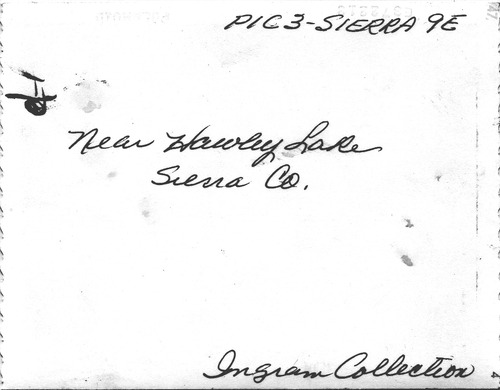 PIC3-SIERRA 9E
Near Hawley Lake
Sierra Co.
Ingram Collection